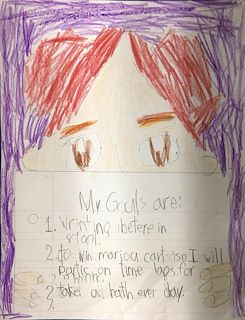 My Goals are:
1. Writing betere in
school.
2. to win marioa cart so I will
partic on time laps for
3. take a bath ever day.